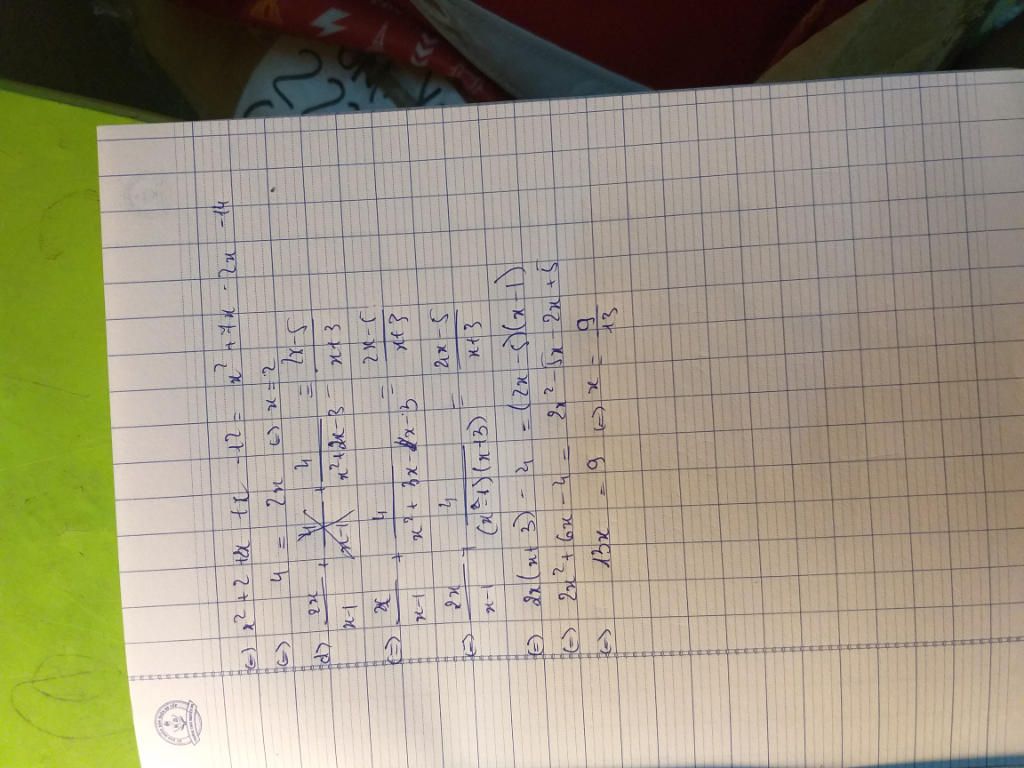 (=) x² + 2 + x - 12 = x² + 7x - 2x - 14
(=) 4 = 2x (=) x = 2
d) 2x/x-1 + 4/x²+2x-3 = 2x-5/x+3
(=) 2x/x-1 + 4/x²+3x-x-3 = 2x-5/x+3
(=) 2x/x-1 + 4/(x-1)(x+3) = 2x-5/x+3
(=) 2x(x+3) - 4 = (2x-5)(x-1)
(=) 2x² + 6x - 4 = 2x² - 5x - 2x + 5
(=) 13x = 9 (=) x = 9/13